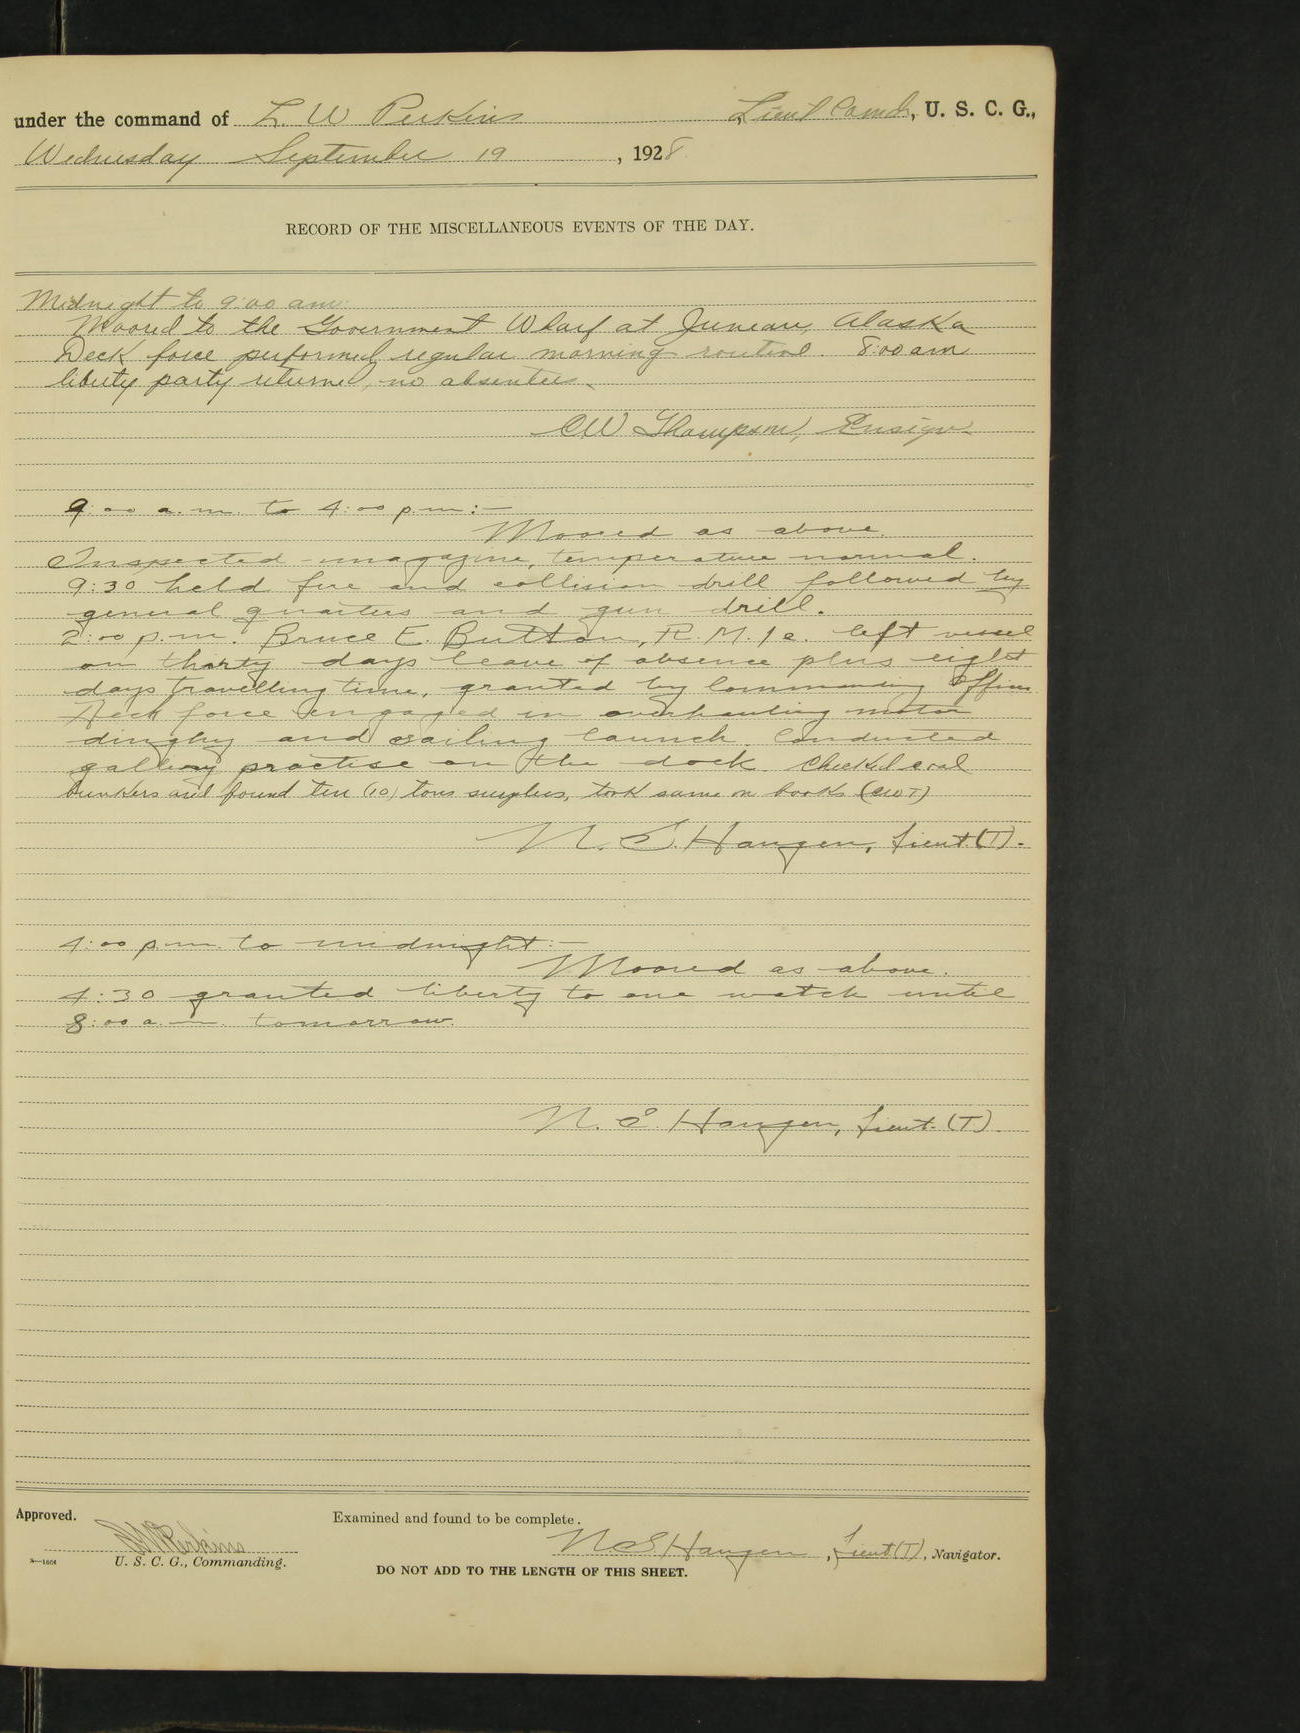 under the command of L. W. Perkins Lieut Comdr, U. S. C. G.,
Wednesday September 19, 1928
RECORD OF THE MISCELLANEOUS EVENTS OF THE DAY.
Midnight to 9:00 am:
Moored to the Government Wharf at Juneau, Alaska
Deck force performed regular morning routine 8:00 am
liberty party returned, no absentees.
CW Thompson, Ensign
9:00 a.m. to 4:00 p.m:-
Moored as above.
Inspected magazine, temperature normal.
9:30 held fire and collision drill followed by
general quarters and gun drill.
2:00 p.m. Bruce E. Button, R.M.1c. left vessel
on thirty days leave of absence plus eight
days travelling time, granted by Commanding Officer
Deck force engaged in overhauling motor
dinghy and sailing launch. Conducted
gallery practise on the dock. Checked coal
bunkers and found ten (10) tons surplus, took same on books (CWT)
N. S. Haugen, Lieut.(T).
4:00 p.m. to midnight:-
Moored as above.
4:30 granted liberty to one watch until
8:00 a.m. tomorrow.
N. S. Haugen, Lieut.(T).
Approved.
Examined and found to be complete.
LW Perkins
N. S. Haugen, Lieut(T), Navigator.
U. S. C. G., Commanding.
DO NOT ADD TO THE LENGTH OF THIS SHEET.